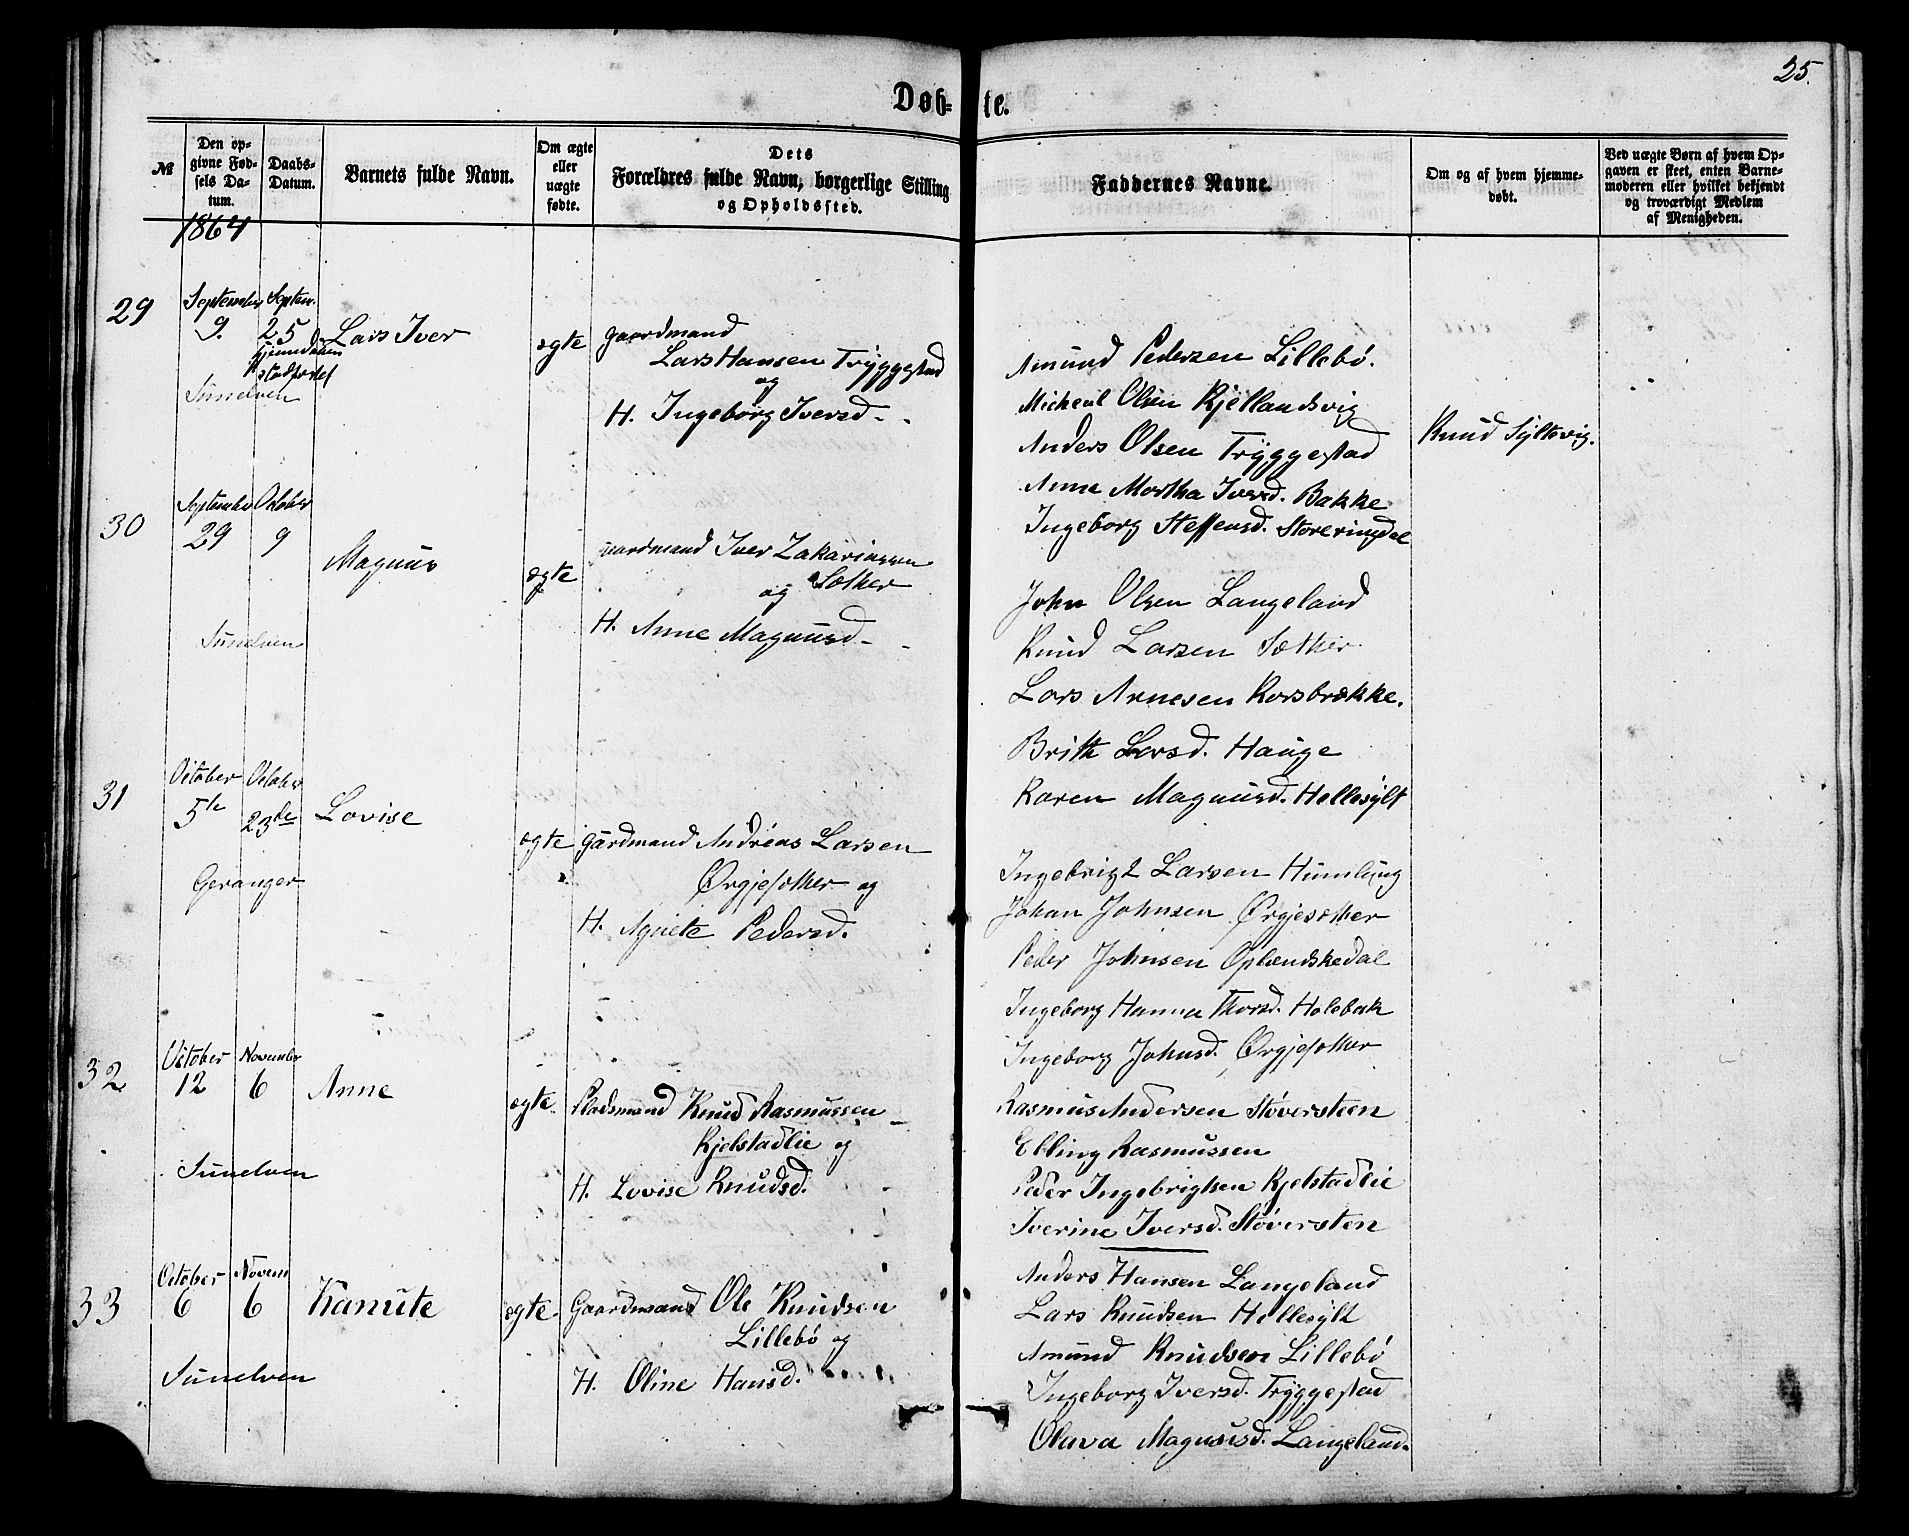 25.
Døb- te.
№
Den op-
givne Fød-
sels Da-
tum.
Daabs-
Datum.
Barnets fulde Navn.
Om ægte
eller
uægte
fødte.
Dets
Forældres fulde Navn, borgerlige Stilling
og Opholdssted.
Faddernes Navne.
Om og af hvem hjemme-
døbt.
Ved uægte Børn af hvem Op-
gaven er skeet, enten Barne-
moderen eller hvilket bekjendt
og troværdigt Medlem
af Menigheden.
1864
29
September
9.
Septem.
25
hjemmedaaben
stadfæstet
Sunelven
Lars Iver
ægte
gaardmand
Lars Hansen Tryggestad
og
H. Ingeborg Iversd.
Amund Pedersen Lillebø.
Micheal Olsen Kjellandsvig
Anders Olsen Tryggestad
Anne Martha Iversd. Bakke
Ingeborg Steffensd. Storeringdal
Knud Syltevig.
30
September
29
October
9
Sunelven
Magnus
ægte
gaardmand Iver Zakariassen
og Sæther
H. Anne Magnusd.
John Olsen Langeland
Knud Larsen Sæther
Lars Arnesen Korsbrække.
Brith Larsd. Hauge
Karen Magnusd. Hellesylt
31
October
5te
October
23de
Geranger
Lovise
ægte
gardmand Andreas Larsen
Ørgjesæther og
H. Agnete Pedersd.
Ingebrigt Larsen Humlung
Johan Johnsen Ørgjesæther
Peder Johnsen Oplændskedal
Ingeborg Hanna Thorsd. Holebak
Ingeborg Johnsd. Ørgjesæther
32
October
12
November
6
Sunelven
Anne
ægte.
Pladsmand Knud Rasmussen
Kjelstadlie og
H. Lovise Knudsd.
Rasmus Andersen Støversteen
Elling Rasmussen
Peder Ingebrigtsen Kjelstadlie
Iverine Iversd. Støversten
33
October
6
Novem
6
Sunelven
Kanute
ægte.
Gaardmand Ole Knudsen
Lillebø og
H. Oline Hansd.
Anders Hansen Langeland
Lars Knudsen Hellesylt
Amund Knudsen Lillebø
Ingeborg Iversd. Tryggestad
Olava Magnusd. Langeland.